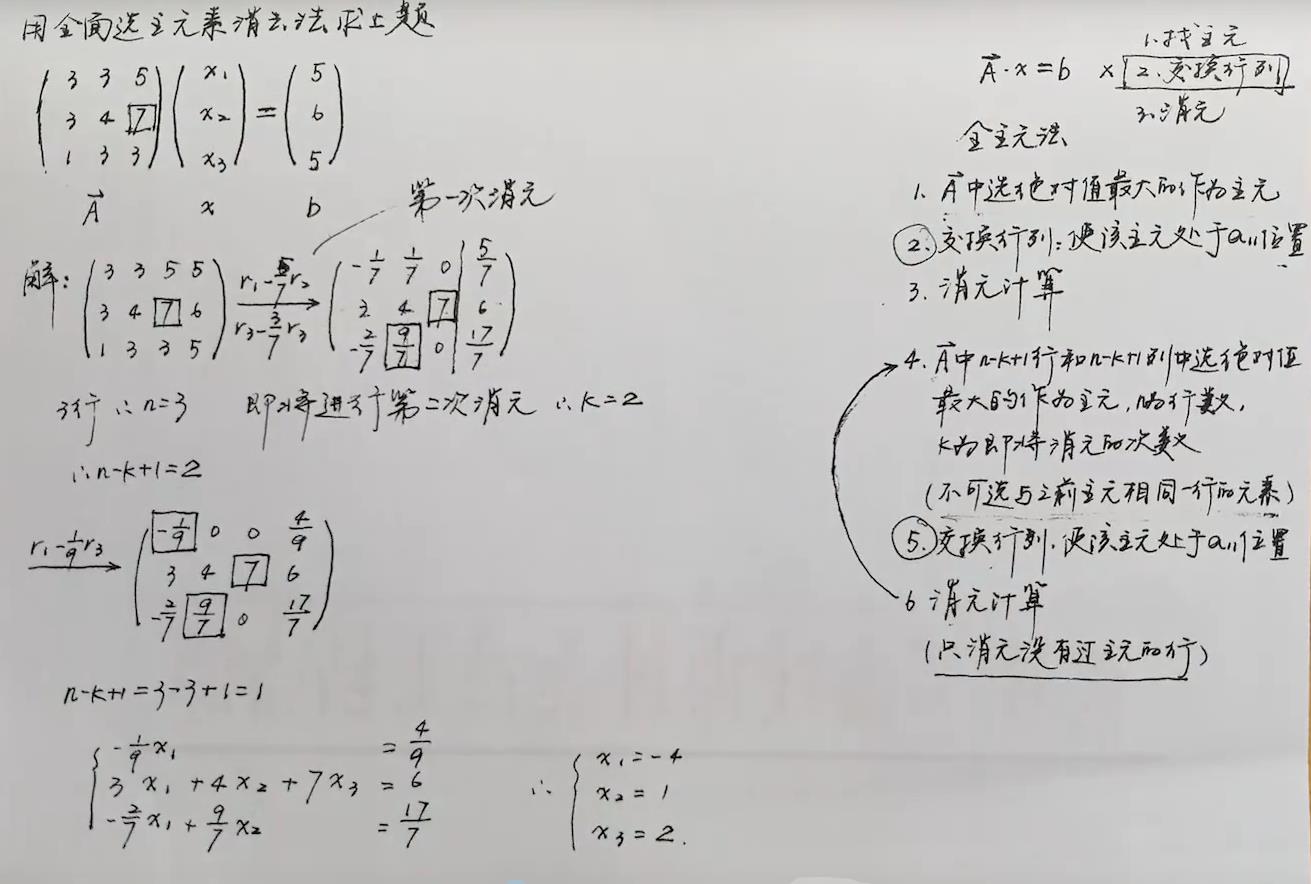 用全面选主元素消去法求上题
( 3 3 5 ) ( x₁ ) ( 5 )
( 3 4 7 ) ( x₂ ) = ( 6 )
( 1 3 3 ) ( x₃ ) ( 5 )
A⃗ x b
第一次消元
解: ( 3 3 5 5 ) r₁-5/7r₂ ( -1/7 1/7 0 | 5/7 )
( 3 4 7 6 ) → ( 3 4 7 | 6 )
( 1 3 3 5 ) r₃-3/7r₃ ( -2/7 9/7 0 | 17/7 )
3行 ∴n=3 即将进行第二次消元 ∴k=2
∴n-k+1=2
r₁-1/9r₃ → ( -1/9 0 0 4/9 )
( 3 4 7 6 )
( -2/7 9/7 0 17/7 )
n-k+1=3-3+1=1
{ -1/9x₁ = 4/9
3x₁+4x₂+7x₃=6
-2/7x₁+9/7x₂ = 17/7
∴ { x₁=-4
x₂=1
x₃=2.
1.找主元
A⃗·x=b × 2.交换行列
3.消元
全主元法
1. A⃗中选绝对值最大的作为主元
②.交换行列:使该主元处于a₁₁位置
3. 消元计算
4. A⃗中n-k+1行和n-k+1列中选绝对值
最大的作为主元,n为行数,
k为即将消元的次数
(不可选与之前主元相同一行的元素)
⑤.交换行列,使该主元处于a₁₁位置
6 消元计算
(只消元没有过主元的行)